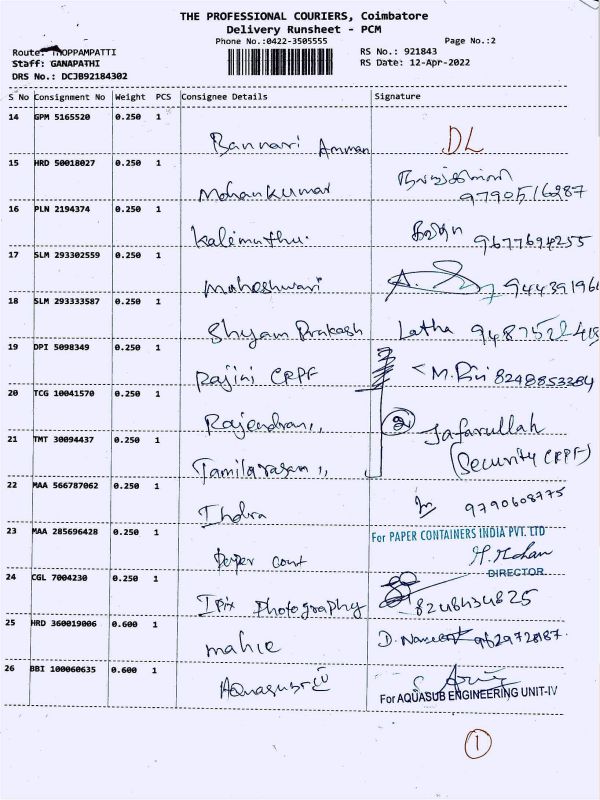 THE PROFESSIONAL COURIERS, Coimbatore
Delivery Runsheet - PCM
Phone No.:0422-3505555 Page No.:2
Route: THOPPAMPATTI RS No.: 921843
Staff: GANAPATHI RS Date: 12-Apr-2022
DRS No.: DCJB92184302
S No Consignment No Weight PCS Consignee Details Signature
14 GPM 5165520 0.250 1
Bannari Amman DL
15 HRD 50018027 0.250 1
Mohankumar 9790516287
16 PLN 2194374 0.250 1
Kalimuthu. 9677694255
17 SLM 293302559 0.250 1
Maheshwari 944391961
18 SLM 293333587 0.250 1
Shyam Prakash Latha
19 DPI 5098349 0.250 1
Rajini CRPF 8248853284
20 TCG 10041570 0.250 1
Rajendran,, 2 Jafarullah
21 TMT 30094437 0.250 1
(Security CRPF)
Tamilarasan ,,
22 MAA 566787062 0.250 1
Indra 9790608775
23 MAA 285696428 0.250 1 For PAPER CONTAINERS INDIA PVT. LTD
paper cont H. Mohan
DIRECTOR
24 CGL 7004230 0.250 1
Ipix Photography 8248434825
25 HRD 360019006 0.600 1
mahie
26 BBI 100060635 0.600 1
Aquasub
For AQUASUB ENGINEERING UNIT-IV
1